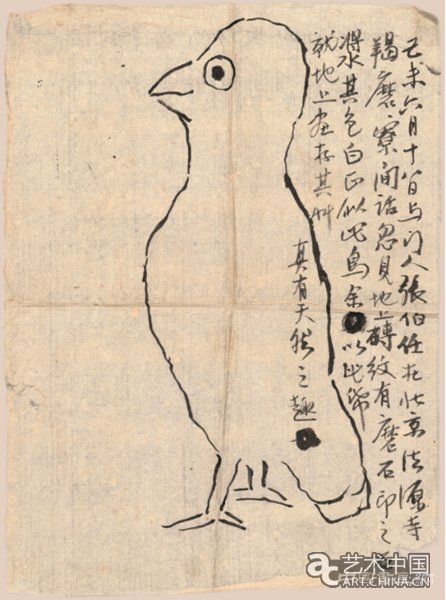 己未六月十八日与门人張伯任在北京法源寺
羯磨寮閒話忽見地上磚紋有磨石印之
漿其色白正似此鳥余以此紙
就地上画存其艸
真有天然之趣
ac 艺术中国
ART.CHINA.CN